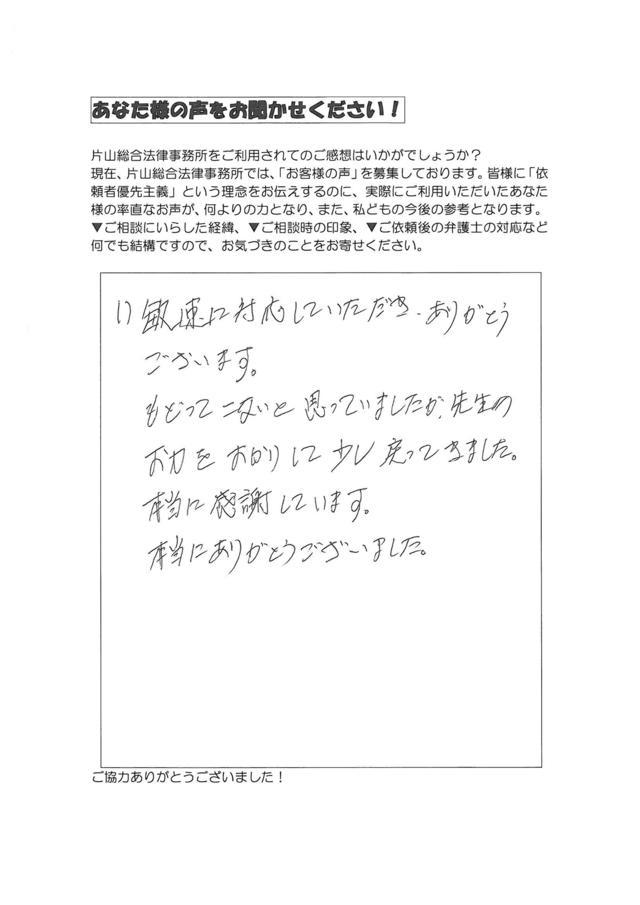 あなた様の声をお聞かせください！
片山総合法律事務所をご利用されてのご感想はいかがでしょうか？
現在、片山総合法律事務所では、「お客様の声」を募集しております。皆様に「依
頼者優先主義」という理念をお伝えするのに、実際にご利用いただいたあなた
様の率直なお声が、何よりの力となり、また、私どもの今後の参考となります。
▼ご相談にいらした経緯、▼ご相談時の印象、▼ご依頼後の弁護士の対応など
何でも結構ですので、お気づきのことをお寄せください。
敏速に対応していただき、ありがとう
ございます。
もどってこないと思っていましたが、先生の
お力をおかりして少し戻ってきました。
本当に感謝しています。
本当にありがとうございました。
ご協力ありがとうございました！